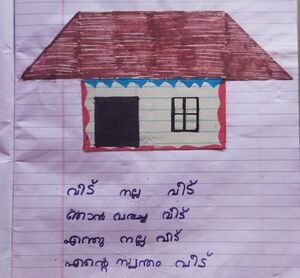 വീട് നല്ല വീട്
ഞാൻ വരച്ച വീട്
എന്തു നല്ല വീട്
എന്റെ സ്വന്തം വീട്